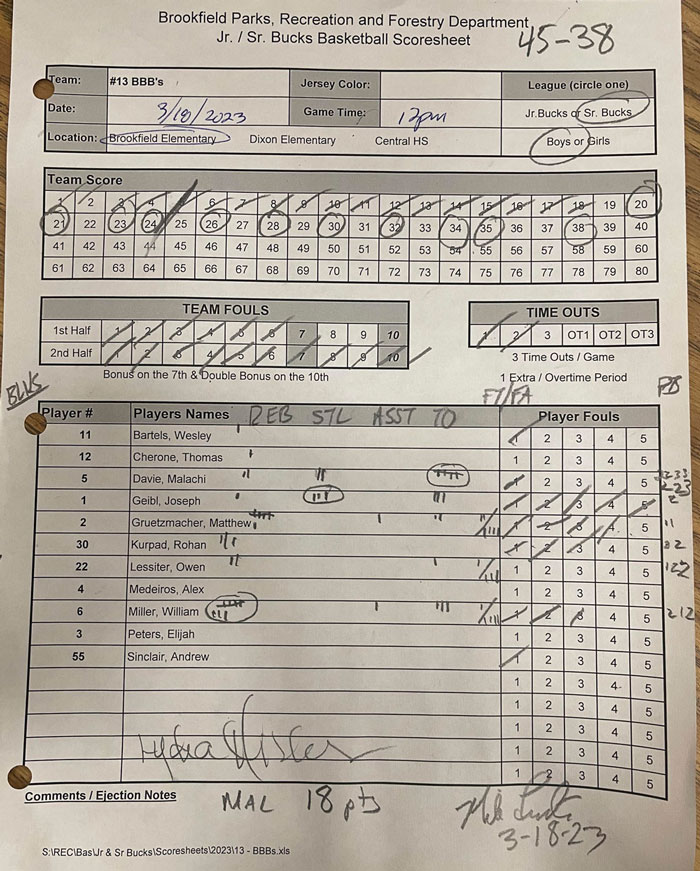 Brookfield Parks, Recreation and Forestry Department
Jr. / Sr. Bucks Basketball Scoresheet
45-38
Team: #13 BBB's Jersey Color: League (circle one)
Date: 3/18/2023 Game Time: 12pm Jr.Bucks or Sr. Bucks
Location: Brookfield Elementary Dixon Elementary Central HS Boys or Girls
Team Score
1 2 3 4 5 6 7 8 9 10 11 12 13 14 15 16 17 18 19 20
21 22 23 24 25 26 27 28 29 30 31 32 33 34 35 36 37 38 39 40
41 42 43 44 45 46 47 48 49 50 51 52 53 54 55 56 57 58 59 60
61 62 63 64 65 66 67 68 69 70 71 72 73 74 75 76 77 78 79 80
TEAM FOULS TIME OUTS
1st Half 1 2 3 4 5 6 7 8 9 10 1 2 3 OT1 OT2 OT3
2nd Half 1 2 3 4 5 6 7 8 9 10 3 Time Outs / Game
Bonus on the 7th & Double Bonus on the 10th 1 Extra / Overtime Period
BLKS FT/FA
Player # Players Names REB STL ASST TO Player Fouls
11 Bartels, Wesley 1 2 3 4 5
12 Cherone, Thomas 1 2 3 4 5
5 Davie, Malachi 1 2 3 4 5
1 Geibl, Joseph 1 2 3 4 5 2
2 Gruetzmacher, Matthew 1 2 3 4 5
30 Kurpad, Rohan 1 2 3 4 5
22 Lessiter, Owen 1 2 3 4 5
4 Medeiros, Alex 1 2 3 4 5
6 Miller, William 1 2 3 4 5 212
3 Peters, Elijah 1 2 3 4 5
55 Sinclair, Andrew 1 2 3 4 5
1 2 3 4 5
1 2 3 4 5
1 2 3 4 5
1 2 3 4 5
1 2 3 4 5
Comments / Ejection Notes MAL 18 pts
3-18-23
S:\REC\Bas\Jr & Sr Bucks\Scoresheets\2023\13 - BBBs.xls